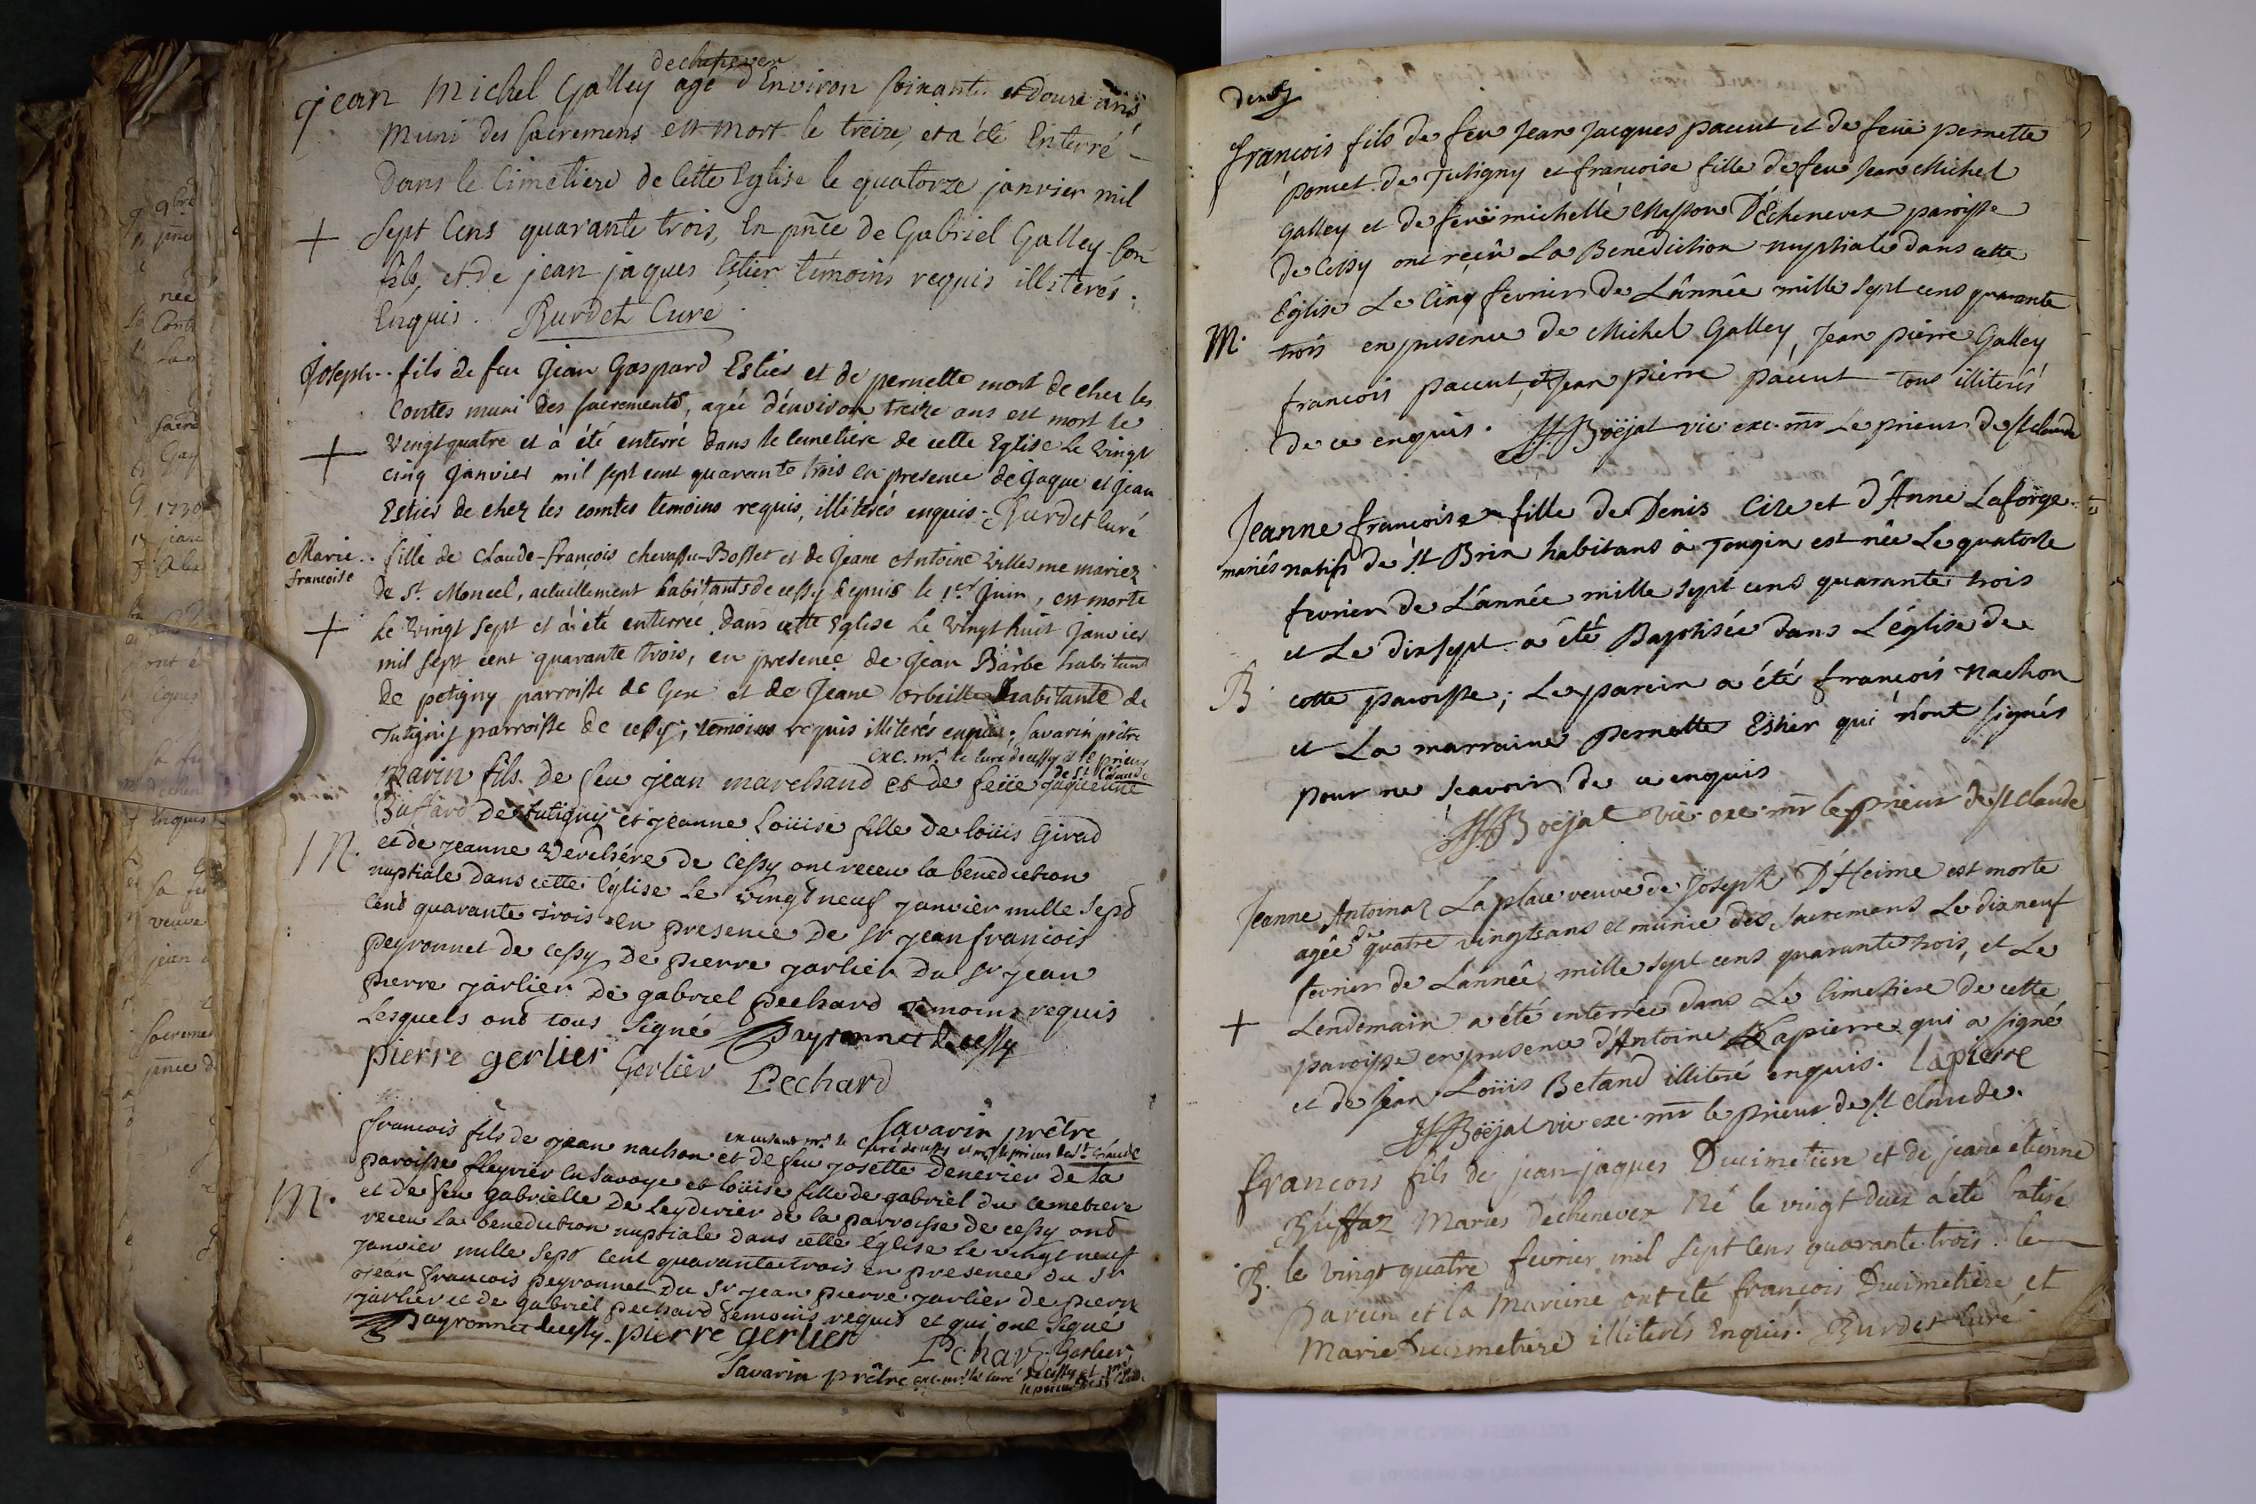 dechenever
jean Michel Galley agé d'Environ soixante et douze ans
Muni des sacremens est mort le treize, et a été Enterré
Dans le Cimetiere de Cette Eglise le quatorze janvier mil
+ Sept Cens quarante trois, En pnce de Gabriel Galley son
fils, et de jean jaques Estier témoins requis illiterés
Enquis. Burdet Curé
Joseph.. fils de feu Jean Gaspard Estier et de pernette mort de cher les
Contes muni des sacrements, agée d'environ treize ans est mort le
+ vingt quatre et à été enterré dans le cemetiere de cette Eglise Le vingt
cinq Janvier mil sept cent quarante trois en presence de Jaque et Jean
Estier de chez les comtes temoins requis, illiterés enquis. Burdet Curé
Marie.. fille de Claude-françois chevassu-Bosset et de Jeane Antoine Villerme mariez
francoise
de St. Moncel, actuellement habitants de cessy depuis le 1er Juin, est morte
+ le vingt sept et à été enterrée dans cette Eglise Le vingt huit Janvier
mil sept cent quarante trois, en presence de Jean Barbe habitant
de petigny parroisse de Gex et de Jeane habitante de
Tutigny parroisse de cessy, temoins requis illiterés enquis. Savarin prêtre
exc. mr. le curé de cessy et le prieur
de St. Claude
Marin fils de feu jean marchand et de feüe jaquemine
Buffard de tutigny et jeanne Loüise fille de loüis Girod
M. et de jeanne de Cessy ont receu la benediction
nuptiale dans cette Eglise Le vingt neuf janvier mille Sept
Cent quarante trois en presence de Sr jean françois
peyronnet de cessy de pierre jarlier du Sr jean
pierre jarlier de gabriel pechard temoins requis
Lesquels ont tous Signé Payronnet de cessy
pierre gerlier Gerlier Pechard
Savarin prêtre
en curé de cessy et mr. le prieur de St. Claude
francois fils de jean nachon et de feu josette denerier de la
paroisse fleyrier en Savoye et loüise fille de gabriel du cemetiere
M. et de feu gabrielle de Leyderier de la parroisse de cessy ont
receu La benediction nuptiale dans cette église le vingt neuf
janvier mille Sept Cent quarante trois en presence du Sr
jean françois peyronnet du Sr jean pierre jarlier de pierre
jarlier et de gabriel pechard temoins requis et qui ont Signé
Payronnet de cessy. pierre gerlier Pechard Gerlier
Savarin prêtre exc. mr. le curé de cessy et mr
le prieur de St Claude
françois fils de feu Jean Jacques pacut et de feüe pernette
poncet de Tutigny et francoise fille de feu Jean Michel
Galley et de feüe michelle Masson D'Echenevex paroisse
de Cessy ont reçeu La Benediction nuptiale dans cette
Eglise Le Cinq fevrier de L'année mille Sept cens quarante
M. trois en presence de Michel Galley, Jean pierre Galley
francois pacut, et Jean pierre pacut tous illiterés
de ce enquis. JJBoëjat vic. exc. mr Le prieur de St claude
Jeanne françoise fille de Denis Cize et d'Anne Laforge
mariés natifs de St Brin habitans à Tougin est née Le quatorze
fevrier de L'année mille Sept cens quarante trois
et Le dixsept a été Baptisée dans L'église de
B. cette paroisse; Le parein a été françois nachon
et La marraine pernette Estier qui n'ont signés
pour ne scavoir de ce enquis
JJBoëjat vic. exc. mr le prieur de St claude
Jeanne Antoinaz Laplace veuve de Joseph D'Heime est morte
agée de quatre vingts ans et munie des sacremens Le dixneuf
fevrier de L'année mille sept cens quarante trois, et Le
+ Lendemain a été enterrée dans Le Cimetiere de cette
paroisse en presence d'Antoine Lapierre qui a signé
et de Jean Loüis Betand illiteré enquis. lapierre
JJBoëjat vic exc. mr le prieur de St claude.
françois fils de jean jaques Ducimetiere et de jeane étienne
Buffaz Mariés dechenevex Né le vingt deux a été batisé
B. le vingt quatre fevrier mil sept Cens quarante trois. le
Parein et la Mareine ont été françois Ducimetiere et
Marie Ducimetiere illiterés Enquis. Burdet Curé